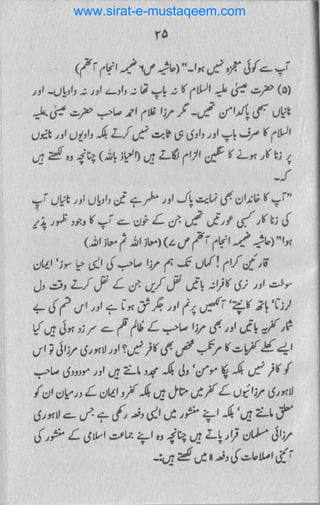 www.sirat-e-mustaqeem.com
۲۵
آپ سے کوئی معجزہ نہیں ہوا"۔ (حاشیہ ص۶ ضمیمہ انجام آتھم)
(۵) حضرت عیسیٰ علیہ السلام کا نہ باپ تھا نہ دادے اور نہ دادیاں۔ اور
نانیاں بھی پاکدامن تھیں۔ مگر مرزا غلام احمد صاحب حضرت عیسیٰ علیہ
السلام کا صرف باپ اور دادا ہی ثابت نہیں کرتے بلکہ دادیوں اور نانیوں
پر زنا کار ہونے کا سنگین الزام لگاتے ہیں (العیاذ باللہ) چنانچہ وہ لکھتے ہیں
کہ۔
"آپ کا خاندان بھی نہایت پاک اور مطہر ہے تین دادیاں اور نانیاں آپ
کی زنا کار کسبی عورتیں تھیں جن کے خون سے آپ کا وجود ظہور پذیر
ہوا" (حاشیہ ضمیمہ انجام آتھم ص ۷) (معاذ اللہ ثم معاذ اللہ)
قارئین کرام! کہاں تک ہم مرزا صاحب کی ایسی حیا سوز، ایمان
سوخت اور نری کافرانہ باتیں نقل کریں جن کے نقل کرتے وقت دل
لرزتا، ہاتھ کانپتے، آنکھیں پرنم اور جگر شق ہوتا ہے اور اس قسم کی بے
شمار کفریہ باتیں اور بھی مرزا صاحب کے قلم ظالم سے سر زد ہوئی ہیں کیا
ایسے کھلے کفریات کا مرتکب شخص بھی کافر نہیں؟ اور لاہوری مرزائی تو اس
کو کافر نہیں بلکہ پکا مومن، ولی بلکہ مجدد مانتے ہیں اور مودودی صاحب
لاہوری مرزائیوں کے کفر میں متامل ہیں بلکہ کفر و ایمان کے درمیان ان کو
معلق مانتے ہیں، بلکہ اپنے منشور میں ایسی دفعہ رکھی ہے جس سے لاہوری
مرزائی مسلمان قرار پاتے ہیں چنانچہ وہ اپنے جماعت اسلامی کے منشور کی
آئینی اصلاحات کی دفعہ ۱۱ میں لکھتے ہیں:-